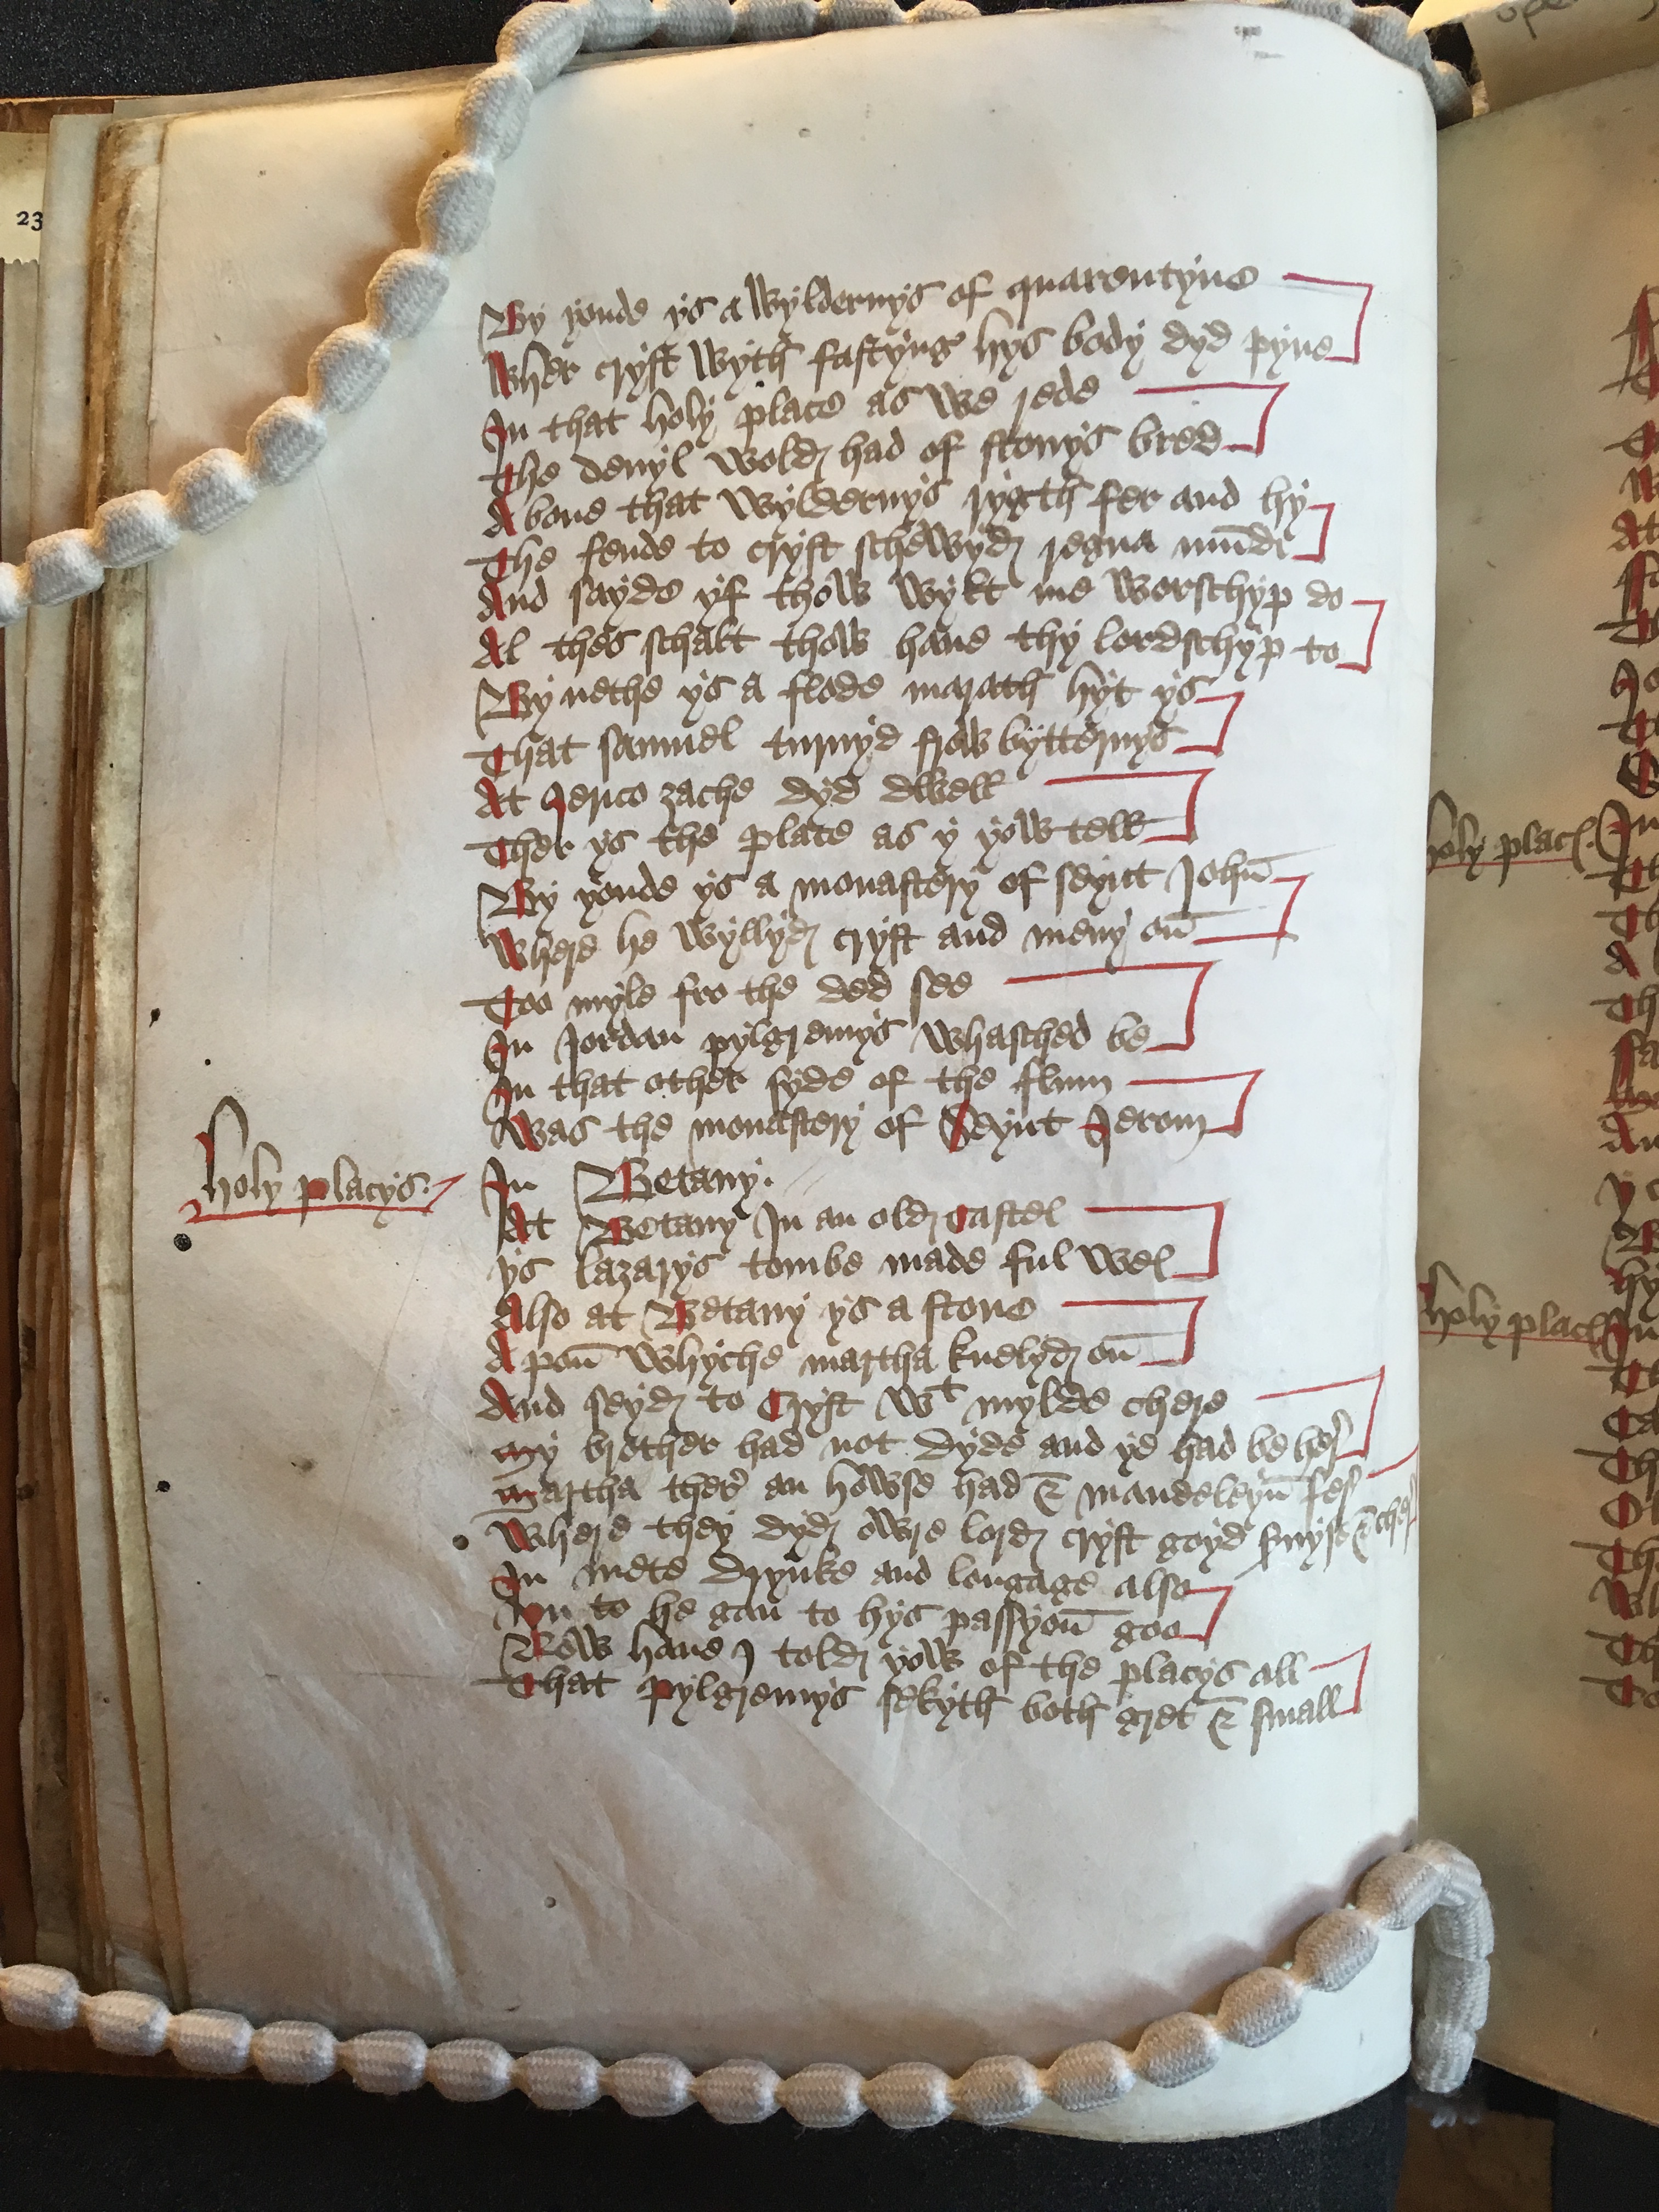 23
By yonde ys a wyldernys of quarentyne
Wher cryst wyth fastyng hys body dyd pyne
In that holy place as we rede
The deuyl wold had of stonys bred
A boue that wyldernys rygth fer and hy
The fende to cryst schewyd regna mūdi
And sayde yf thow wylt me worschyp do
Al thes schalt thow haue thy lordschyp to
By nethe ys a flode marath hyt ys
That samuel turnyd frow bytternys
At Jerico zache dyd dwell
Ther ys the place as y yow tell
By yonde ys a monastery of seynt John̄
Where he wyllyd cryst and meny on̄
Too myle fro the ded see
In Jordan pylgremys whasched be
In that other syde of the flum
Was the monastery of Seynt Jerom
holy placys.
In Betany.
At Betany In an old castel
ys lazarys tombe made ful wel
Also at Betany ys a stone
A pon̄ whyche martha knelyd on̄
And seyd to Cryst wt mylde chere
my brother had not dyde and ye had be her
martha ther an howse had & maudeleyn̄ fer
Where they dyd owre lord cryst
In mete drynke and longage also
Vn to he gan to hys passyon̄ goo
Now haue I told yow of the placys all
That pylgremys sekyth both gret & small
holy plac
holy plac